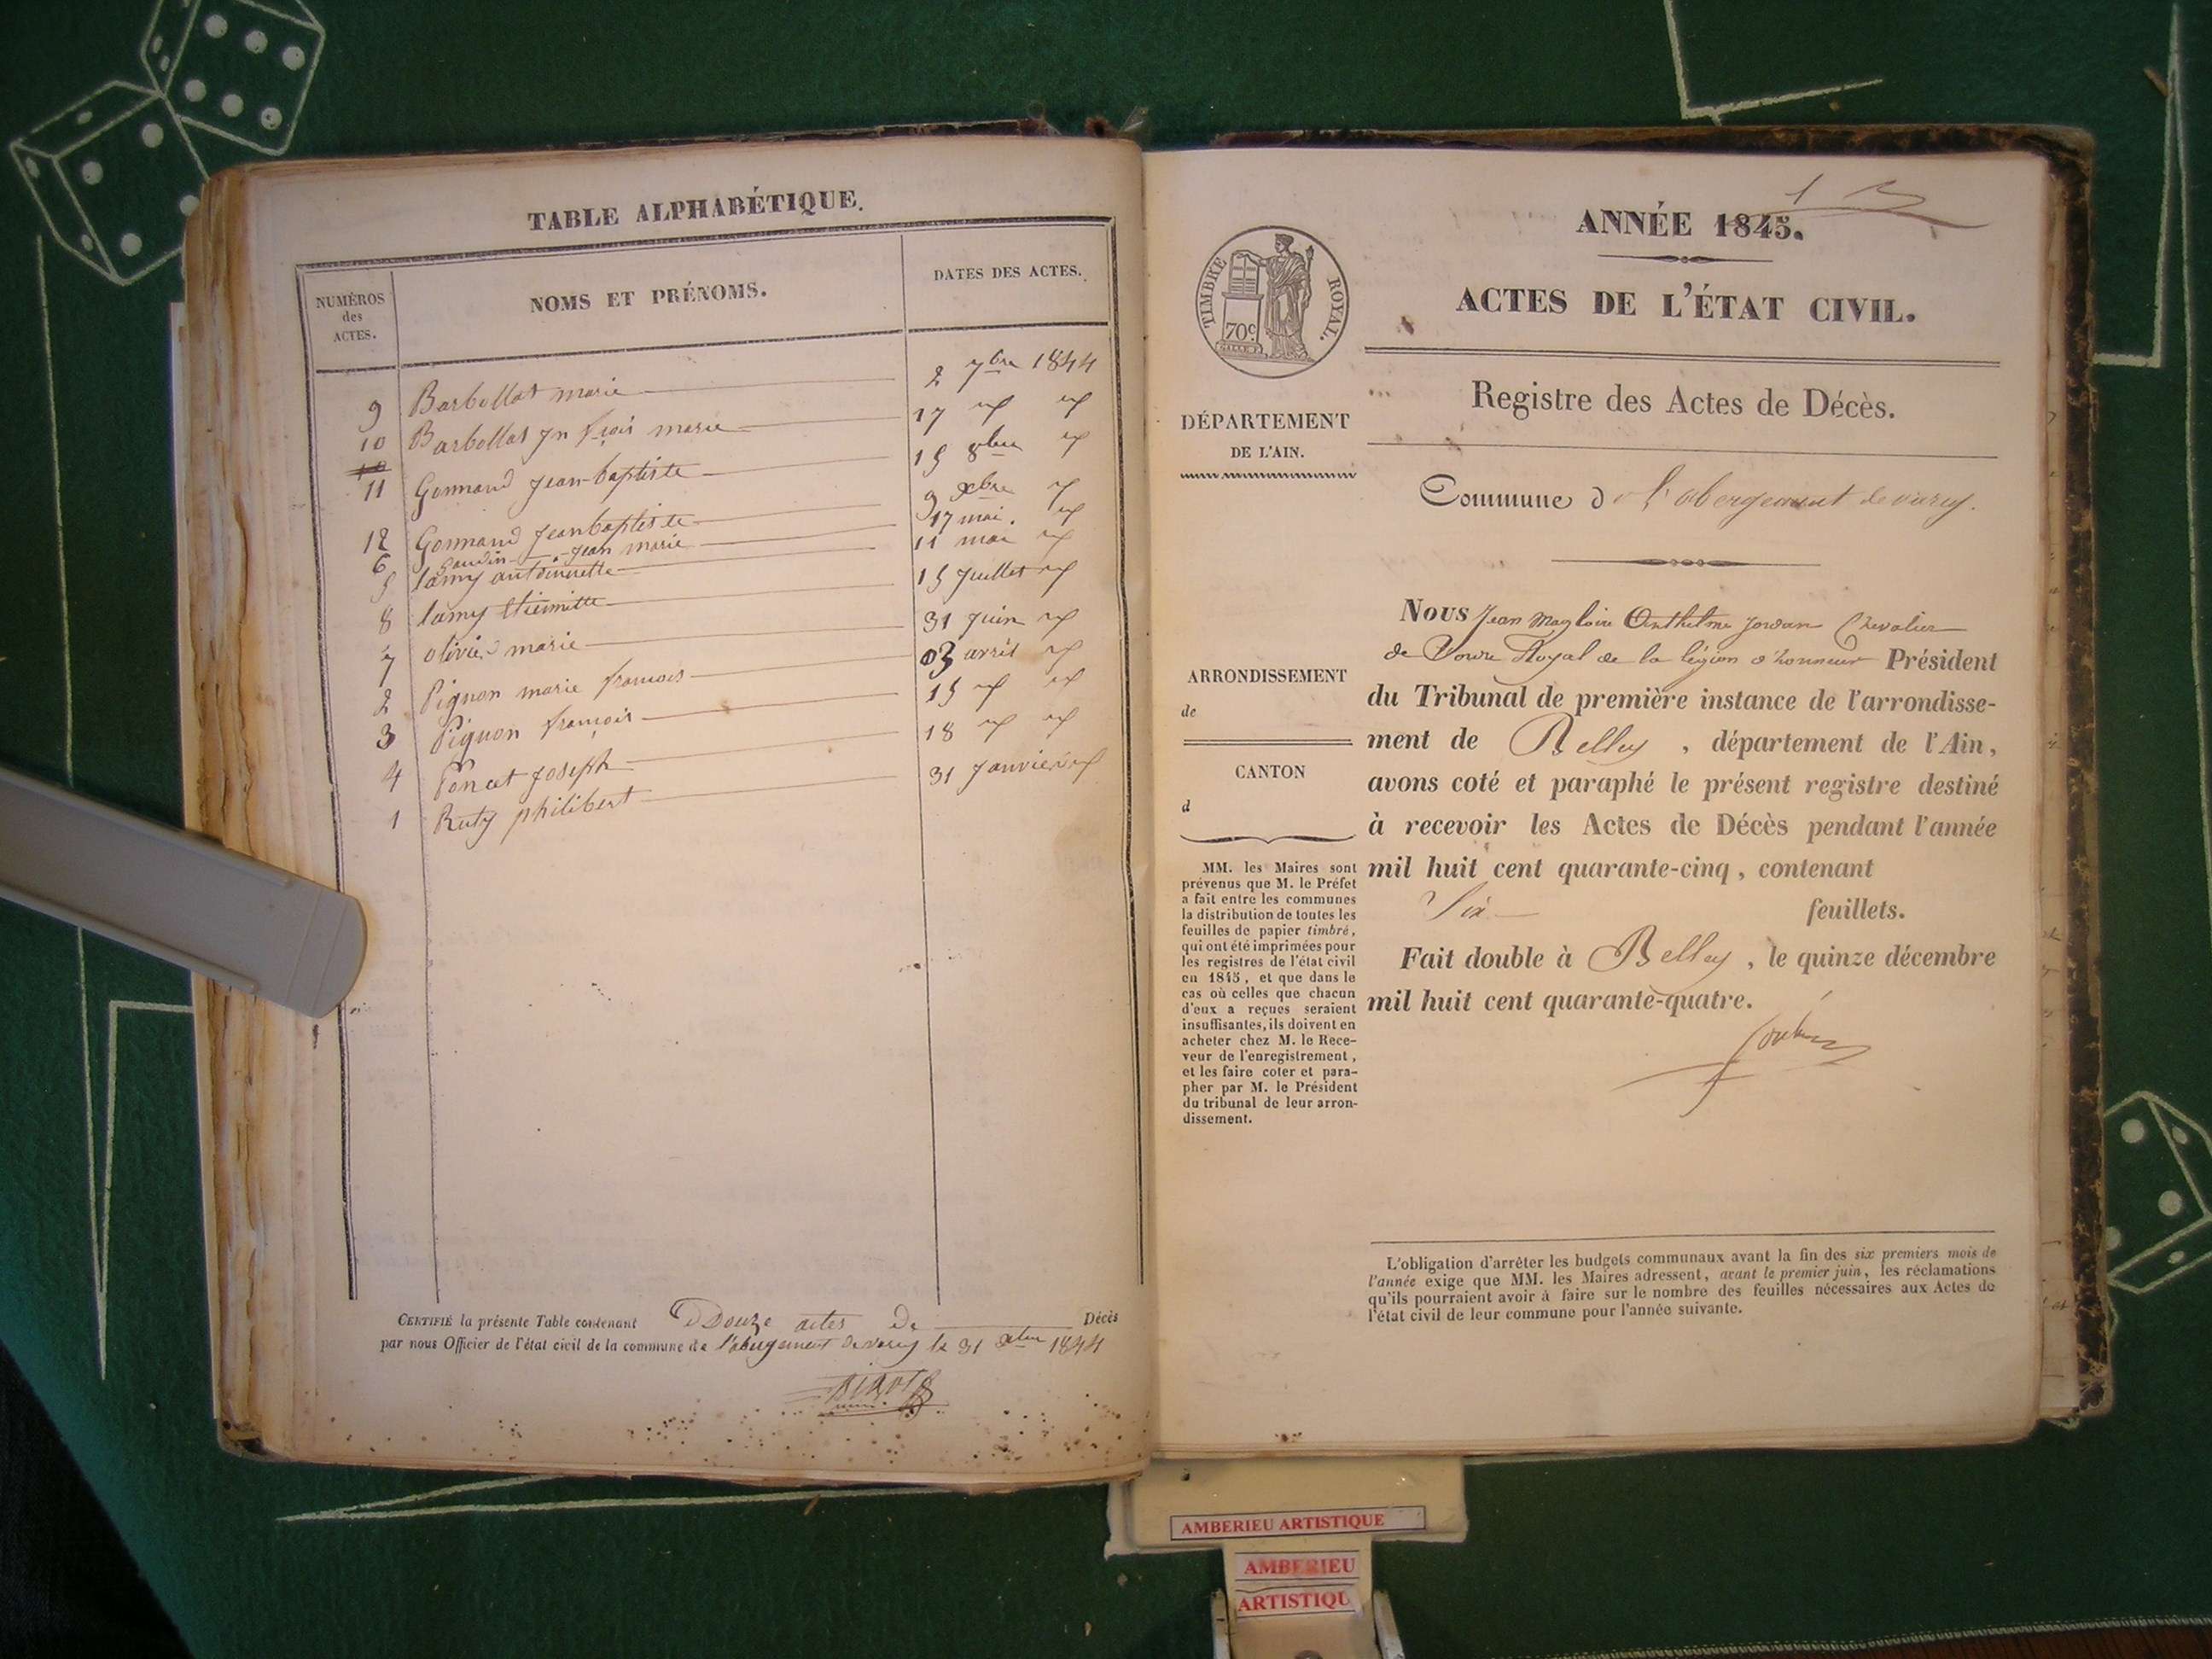 TABLE ALPHABÉTIQUE.
NUMÉROS des ACTES.
NOMS ET PRÉNOMS.
DATES DES ACTES.
9 Barbollat marie 2 7bre 1844
10 Barbollat jn fçois marie 17
11 Gonnand jean-baptiste 15 8bre
12 Gonnand jean baptiste 9 xbre
6 Gaudin jean marie 17 mai
5 lamy antoinette 11 mai
8 lamy 15 juillet
7 olivier marie 31 juin
2 Pignon marie francois 03 avril
3 Pignon françois 15
4 Poncet joseph 18
1 Ruty philibert 31 janvier
CERTIFIÉ la présente Table contenant Douze actes De Décès
par nous Officier de l'état civil de la commune de l'abergement de varey le 31 xbre 1844
ANNÉE 1845.
ACTES DE L'ÉTAT CIVIL.
TIMBRE ROYAL.
70c
Registre des Actes de Décès.
DÉPARTEMENT
DE L'AIN.
Commune de l'abergement de varey.
ARRONDISSEMENT
de
CANTON
d
MM. les Maires sont
prévenus que M. le Préfet
a fait entre les communes
la distribution de toutes les
feuilles de papier timbré,
qui ont été imprimées pour
les registres de l'état civil
en 1845, et que dans le
cas où celles que chacun
d'eux a reçues seraient
insuffisantes, ils doivent en
acheter chez M. le Rece-
veur de l'enregistrement,
et les faire coter et para-
pher par M. le Président
du tribunal de leur arron-
dissement.
Nous Jean Magloire Anthelme Jordan Chevalier
de l'ordre Royal de la légion d'honneur Président
du Tribunal de première instance de l'arrondisse-
ment de Belley, département de l'Ain,
avons coté et paraphé le présent registre destiné
à recevoir les Actes de Décès pendant l'année
mil huit cent quarante-cinq, contenant
Six feuillets.
Fait double à Belley, le quinze décembre
mil huit cent quarante-quatre.
L'obligation d'arrêter les budgets communaux avant la fin des six premiers mois de
l'année exige que MM. les Maires adressent, avant le premier juin, les réclamations
qu'ils pourraient avoir à faire sur le nombre des feuilles nécessaires aux Actes de
l'état civil de leur commune pour l'année suivante.
AMBERIEU ARTISTIQUE
AMBERIEU
ARTISTIQU